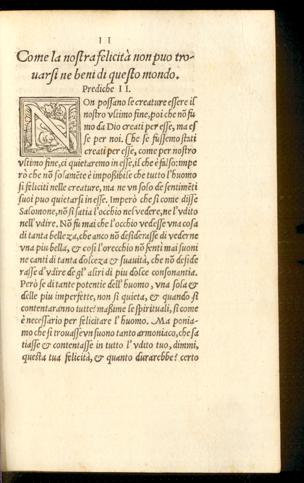 II
Come la nostra felicità non puo tro-
uarsi ne beni di questo mondo.
Prediche II.
NOn possano le creature essere il
nostro vltimo fine, poi che nõ fu
mo da Dio creati per esse, ma es
se per noi. Che se fussemo stati
creati per esse, come per nostro
vltimo fine, ci quietaremo in esse, il che è falso: impe
rò che nõ solamẽte è impoßibile che tutto l'huomo
si feliciti nelle creature, ma ne vn solo de sentimẽti
suoi puo quietarsi in esse. Imperò che si come disse
Salomone, nõ si satia l'occhio nel vedere, ne l'vdito
nell'vdire. Nõ fu mai che l'occhio vedesse vna cosa
di tanta bellezza, che anco nõ desiderasse di vederne
vna piu bella, & cosi l'orecchio nõ sentì mai suoni
ne canti di tanta dolcezza & suauità, che nõ deside
rasse d'vdire de gl' altri di piu dolce consonantia.
Però se di tante potentie dell'huomo, vna sola &
delle piu imperfette, non si quieta, & quando si
contentaranno tutte? maßime le spirituali, si come
è necessario per felicitare l'huomo. Ma ponia-
mo che si trouasse vn suono tanto armoniaco, che sa
tiasse & contentasse in tutto l'vdito tuo, dimmi,
questa tua felicità, & quanto durarebbe? certo